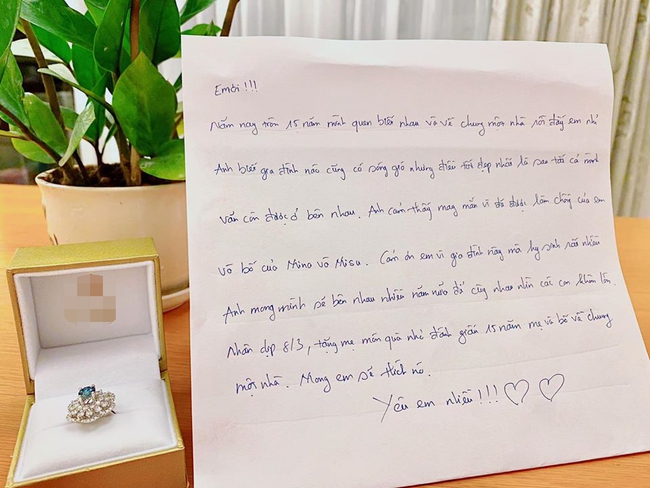 Emời !!!
Năm nay tròn 15 năm mình quen biết nhau và về chung một nhà rồi đấy em nhỉ
Anh biết gia đình nào cũng có sóng gió nhưng điều tốt đẹp nhất là sau tất cả mình
vẫn còn được ở bên nhau. Anh cảm thấy may mắn vì đã được làm chồng của em
và bố của Mina và Misu. Cảm ơn em vì gia đình này mà hy sinh rất nhiều
Anh mong mình sẽ bên nhau nhiều năm nữa để cùng nhau nhìn các con khôn lớn.
Nhân dịp 8/3, tặng mẹ món quà nhỏ đánh giấu 15 năm mẹ và bố về chung
một nhà. Mong em sẽ thích nó.
Yêu em nhiều!!! ♡ ♡